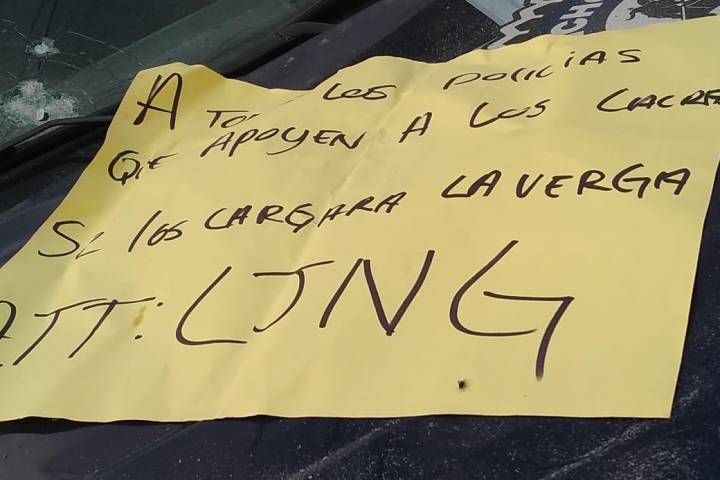 A TO  LOS POLICIAS
QUE APOYEN A LOS
SE los CARGARA LA VERGA
ATT: CJNG